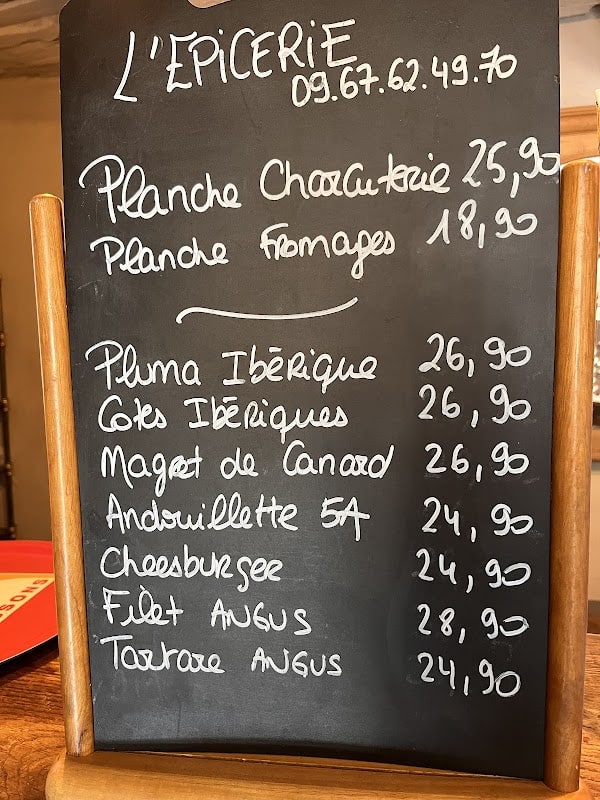 L'EPICERIE
09.67.62.49.70
Planche Charcuterie 25,90
Planche Fromages 18,90
Pluma Ibérique 26,90
Cotes Ibériques 26,90
Magret de Canard 26,90
Andouillette 5A 24,90
Cheesburger 24,90
Filet ANGUS 28,90
Tartare ANGUS 24,90